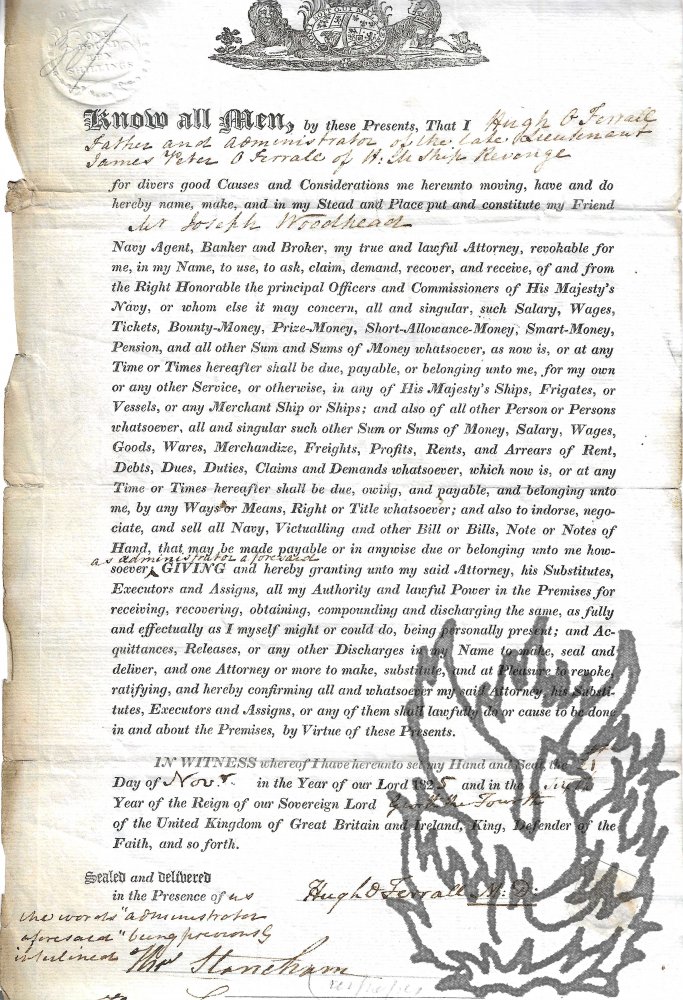 Know all Men, by these Presents, That I Hugh O Ferrall
Father and administrator of the late Lieutenant
James Peter O Ferrall of H. M Ship Revenge
for divers good Causes and Considerations me hereunto moving, have and do
hereby name, make, and in my Stead and Place put and constitute my Friend
Mr Joseph Woodhead
Navy Agent, Banker and Broker, my true and lawful Attorney, revokable for
me, in my Name, to use, to ask, claim, demand, recover, and receive, of and from
the Right Honorable the principal Officers and Commissioners of His Majesty's
Navy, or whom else it may concern, all and singular, such Salary, Wages,
Tickets, Bounty-Money, Prize-Money, Short-Allowance-Money, Smart-Money,
Pension, and all other Sum and Sums of Money whatsoever, as now is, or at any
Time or Times hereafter shall be due, payable, or belonging unto me, for my own
or any other Service, or otherwise, in any of His Majesty's Ships, Frigates, or
Vessels, or any Merchant Ship or Ships; and also of all other Person or Persons
whatsoever, all and singular such other Sum or Sums of Money, Salary, Wages,
Goods, Wares, Merchandize, Freights, Profits, Rents, and Arrears of Rent,
Debts, Dues, Duties, Claims and Demands whatsoever, which now is, or at any
Time or Times hereafter shall be due, owing, and payable, and belonging unto
me, by any Ways or Means, Right or Title whatsoever; and also to indorse, nego-
ciate, and sell all Navy, Victualling and other Bill or Bills, Note or Notes of
Hand, that may be made payable or in anywise due or belonging unto me how-
as administrator aforesaid
soever; GIVING and hereby granting unto my said Attorney, his Substitutes,
Executors and Assigns, all my Authority and lawful Power in the Premises for
receiving, recovering, obtaining, compounding and discharging the same, as fully
and effectually as I myself might or could do, being personally present; and Ac-
quittances, Releases, or any other Discharges in my Name to make, seal and
deliver, and one Attorney or more to make, substitute, and at Pleasure to revoke,
ratifying, and hereby confirming all and whatsoever my said Attorney, his Substi-
tutes, Executors and Assigns, or any of them shall lawfully do or cause to be done
in and about the Premises, by Virtue of these Presents.
IN WITNESS whereof I have hereunto set my Hand and Seal the
Day of Novr. in the Year of our Lord 1825 and in the
Year of the Reign of our Sovereign Lord George the Fourth
of the United Kingdom of Great Britain and Ireland, King, Defender of the
Faith, and so forth.
Sealed and delivered
in the Presence of us
Hugh O Ferrall M: D:
the words "administrator
aforesaid" being previously
interlined
Thos Stoneham